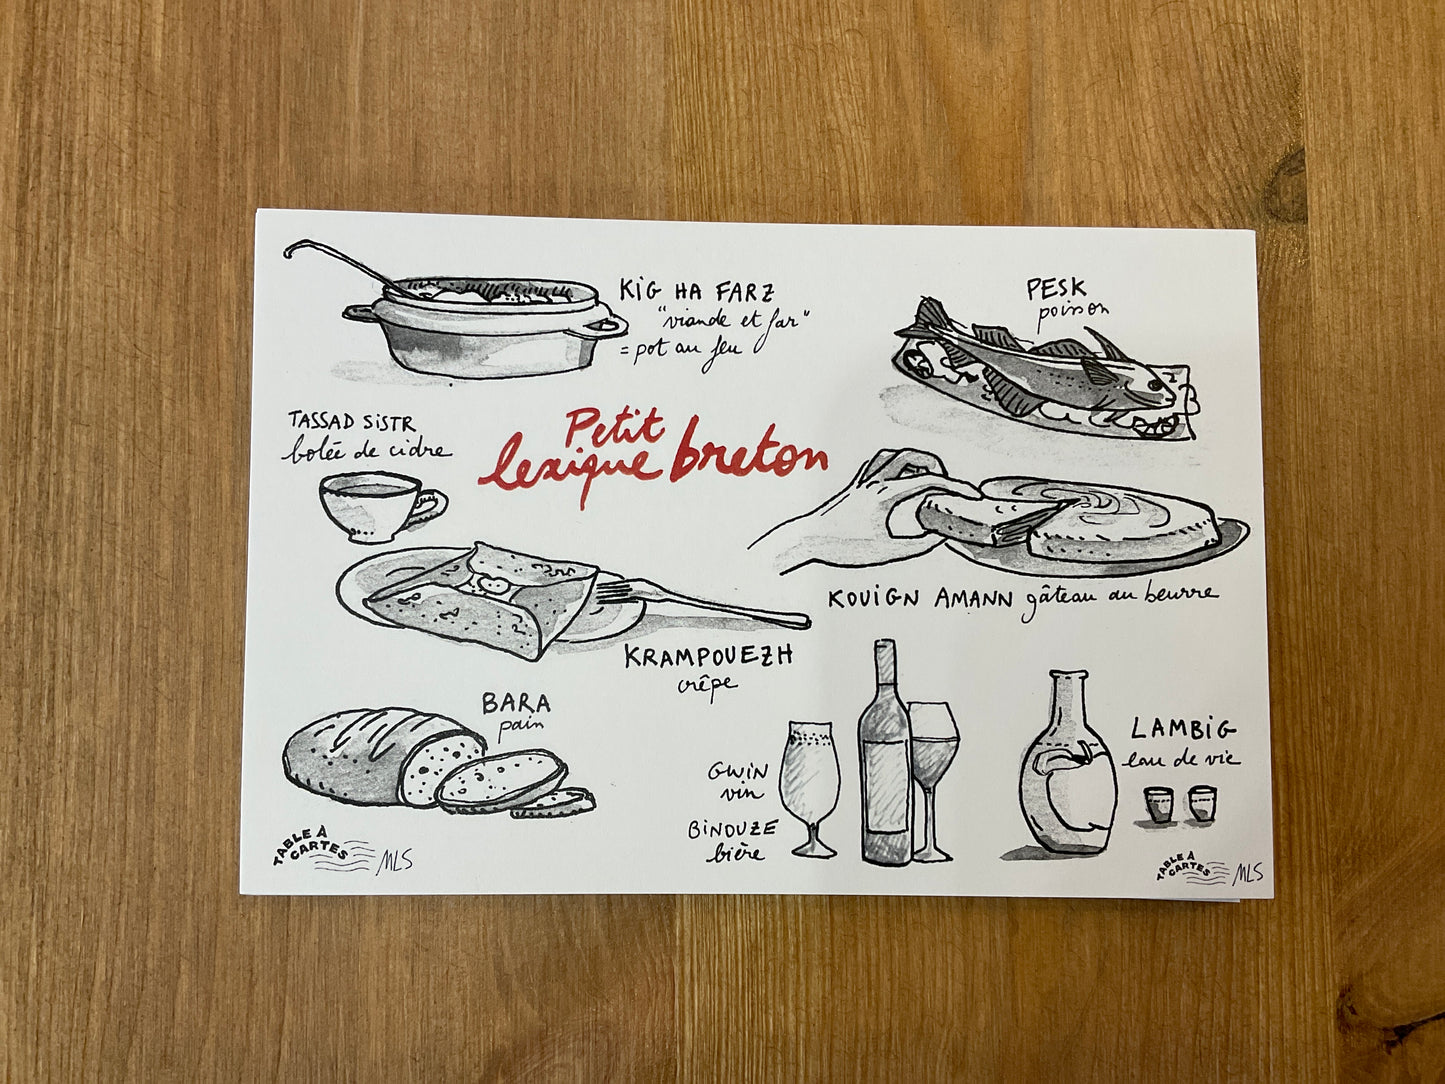 KIG HA FARZ
"viande et far"
= pot au feu
PESK
poisson
TASSAD SISTR
bolée de cidre
Petit
lexique breton
KOUIGN AMANN gâteau au beurre
KRAMPOUEZH
crêpe
BARA
pain
GWIN
vin
BINOUZE
bière
LAMBIG
eau de vie
TABLE À
CARTES
MLS
TABLE À
CARTES
MLS